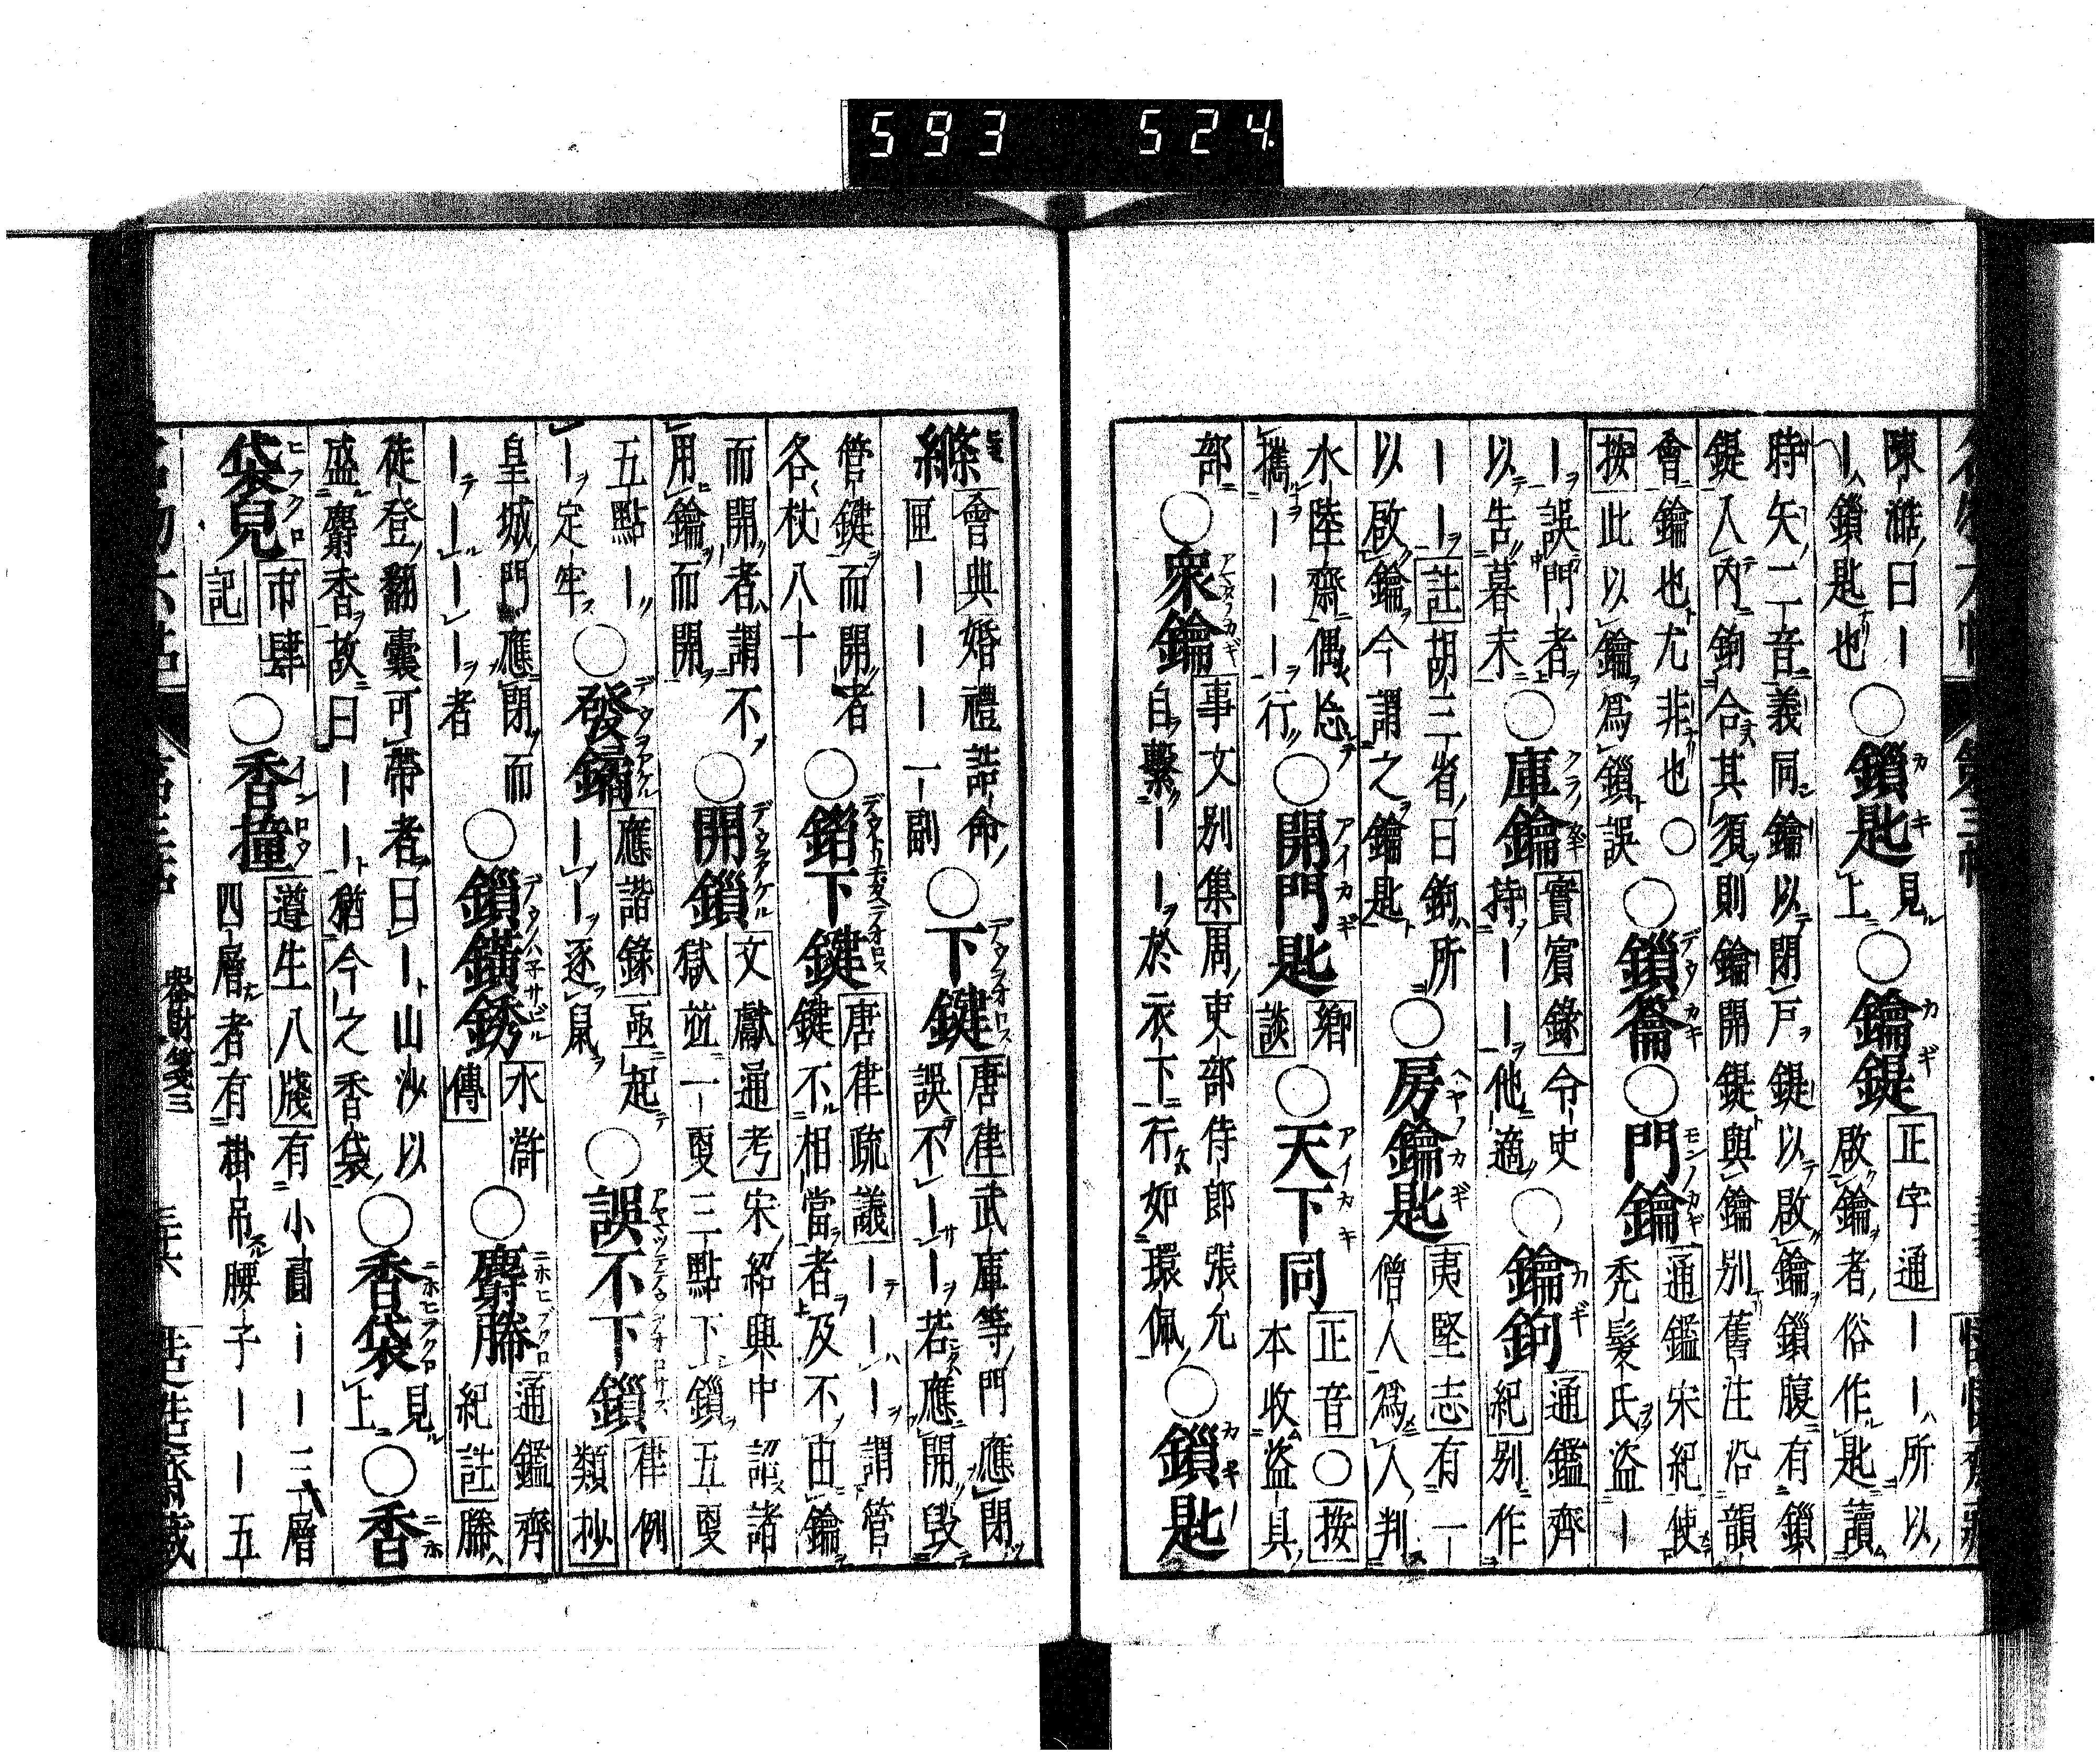 593 524
陳澔曰ー
ー鎖匙也
○鎖匙見上
○鑰鍉
正字通ーー所以
啟鑰者俗作匙讀
時矢二音義同鑰以閉戶鍉以啟鑰鎖腹有鎖
鍉入内鉤合其須則鑰開鍉與鑰別舊注沿韻
會鑰也尤非也○
按此以鑰為鎖誤
○鎖鑰
○門鑰
通鑑宋紀使
禿髮氏盜ー
ー誤門者
以告暮末
○庫鑰
實賓錄令史
持ーー他適
○鑰鉤
通鑑齊
紀別作
ーー註胡三省曰鉤所
以啟鑰今謂之鑰匙
○房鑰匙
夷堅志有一
僧人為人判
水陸齋偶忘
攜ーーー行
○開門匙
鄉談
○天下同
正音○按
本收盜具
部
○衆鑰
事文別集周吏部侍郎張允
自繫ーー於衣下行如環佩
○鎖匙
縧
會典婚禮誥命
匣ーーーー一副
○下鍵
唐律武庫等門應閉
誤不ーー若應開毀
管鍵而開者
各杖八十
○錯下鍵
唐律疏議ーーー謂管
鍵不相當者及不由鑰
而開者謂不
用鑰而開
○開鎖
文獻通考宋紹興中詔諸
獄並一更三點下鎖五更
五點ー
ー定牢
○發鐍
應諧錄亟起
ーー逐鼠
○誤不下鎖
律例
類抄
皇城門應閉而
ーーーー者
○鎖鐄銹
水滸
傳
○麝幐
通鑑齊
紀註幐
徒登翻囊可帶者曰ー山沙以
盛麝香故曰ーー猶今之香袋
○香袋見上
○香
袋兒
市肆
記
○香撞
遵生八牋有小圓ーー三層
四層者有掛吊腰子ーー五
器財箋三